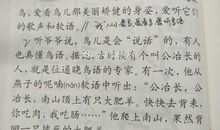 鸟，爱看鸟儿那美丽矫健的身姿，爱听它们
的歌声和软语。
听爷爷说，鸟儿是会“说话”的，有人
也真懂鸟语。据说，古时候有个叫公冶长的
人，就是位通晓鸟语的专家。有一次，他从
燕子的呢喃(nán)软语中听出：“公冶长，公冶
长，南山顶上有只大肥羊，快快去背来，
你吃肉，我吃肠……”他爬上南山，果然背
回一只摔死的大肥羊